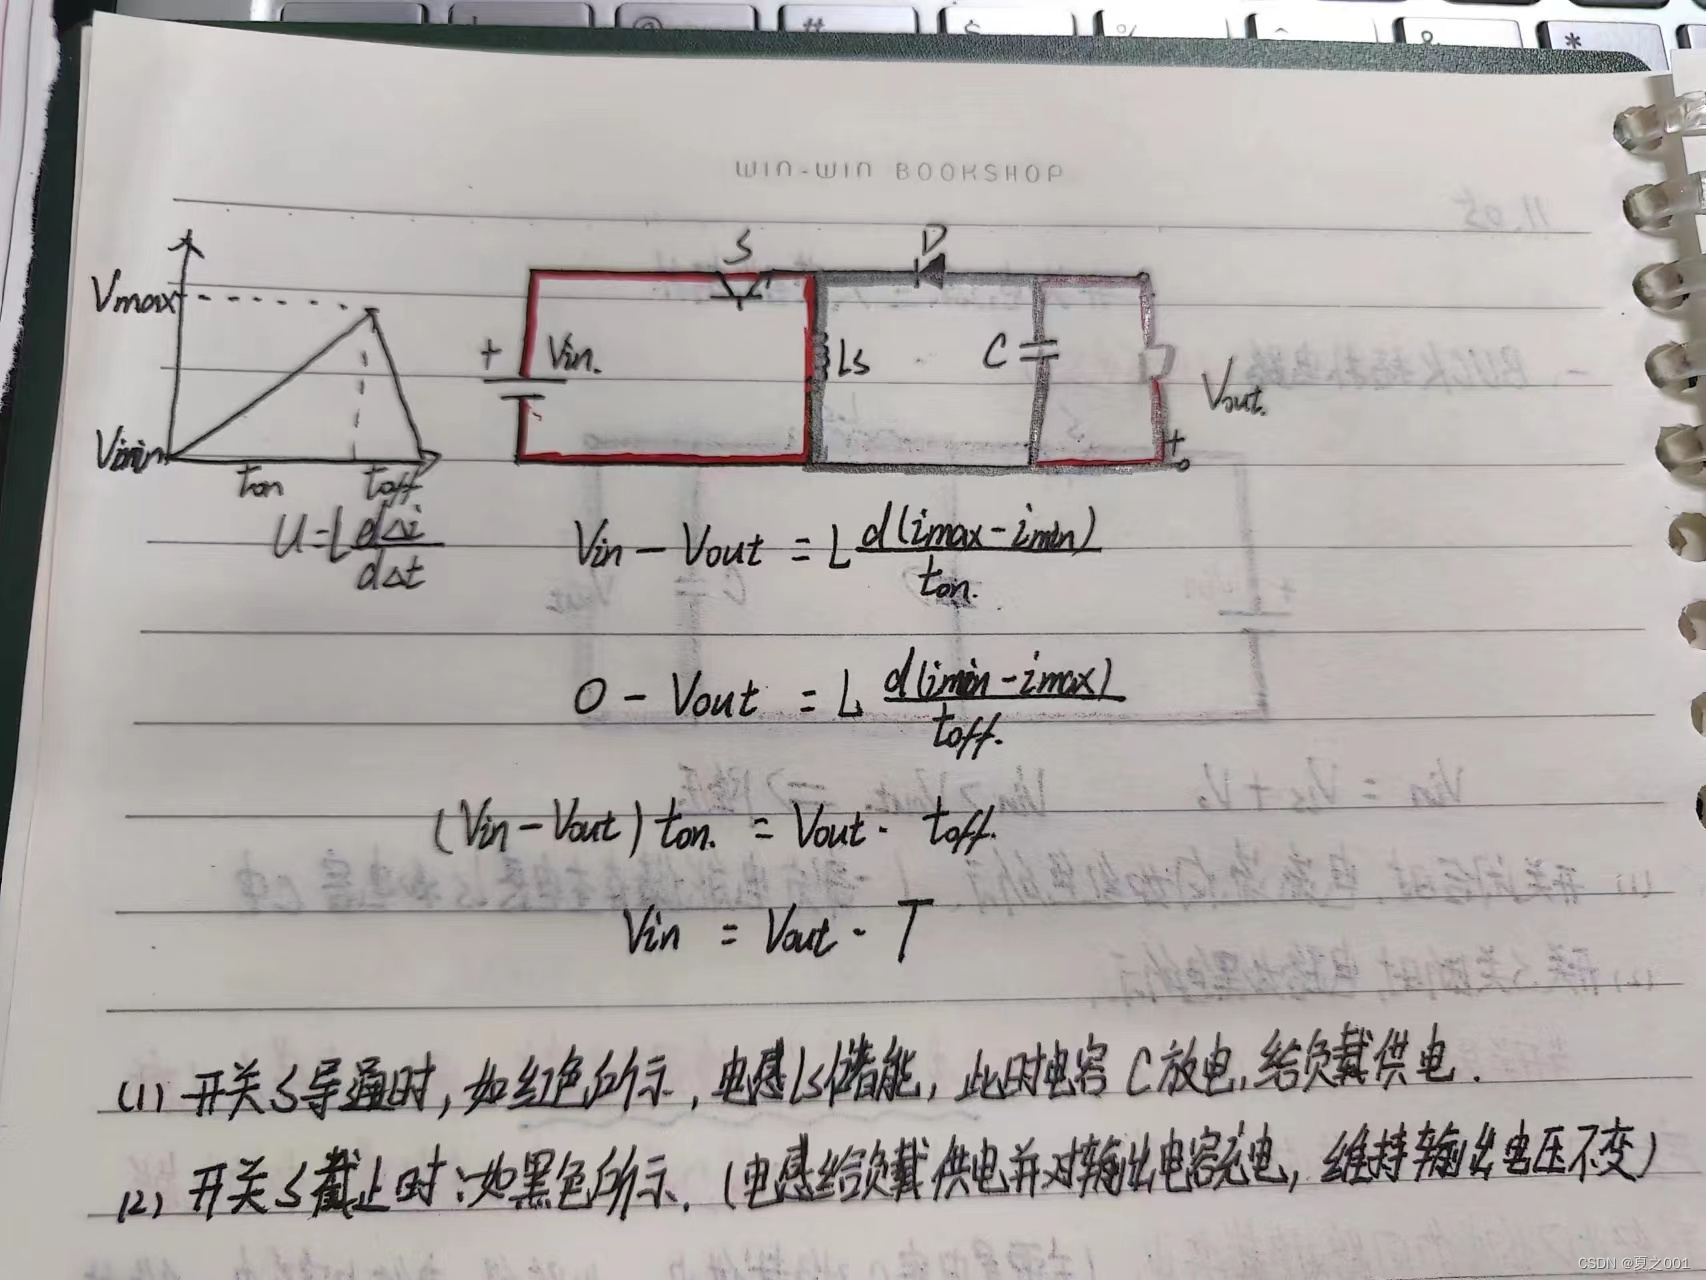 WIN-WIN BOOKSHOP
S
D
Vmax
+
Vin.
Ls
C
Vout.
Vimin
+
ton
toff
U=L dΔi/dΔt
Vin - Vout = L d(imax-imin)/ton.
0 - Vout = L d(imin-imax)/toff.
(Vin-Vout) ton. = Vout · toff.
Vin = Vout · T
(1) 开关S导通时，如红色所示，电感Ls储能，此时电容C放电，给负载供电．
(2) 开关S截止时：如黑色所示．(电感给负载供电并对输出电容充电，维持输出电压不变)
CSDN @夏之001